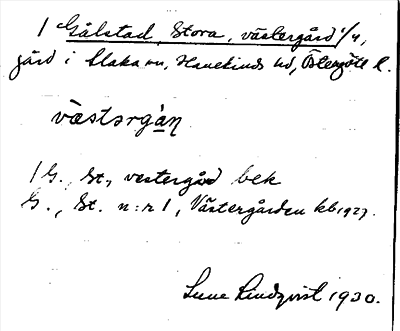 1 Gålstad, Stora, västergård 1/4,
gård i Slaka sn, Hanekinds hd, Östergötl l.
västərgàn
1 G., St., vestergård bek
G., St. n:r 1, Västergården kb 1927.
Sune Lindqvist 1930.